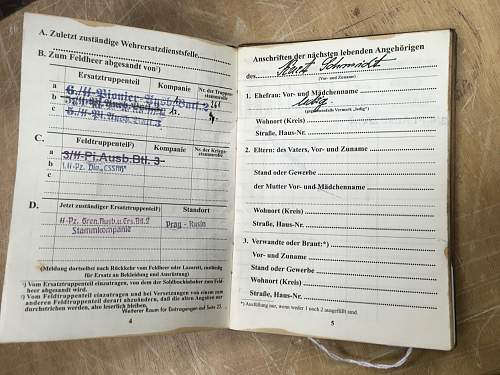 A. Zuletzt zuständige Wehrersatzdienststelle
B. Zum Feldheer abgesandt von¹)
Ersatztruppenteil Kompanie Nr. der Truppen-
stammrolle
a 6./
b
c
C. Feldtruppenteil²) Kompanie Nr. der Kriegs-
stammrolle
a 3/ϟϟ-Pi.Ausb.Btl. 3
b
c
D. Jetzt zuständiger Ersatztruppenteil²) Standort
ϟϟ-Pz. Gren. Ausb. u. Ers. Btl. Prag - Rusin
Stammkompanie
(Meldung dortselbst nach Rückkehr vom Feldheer oder Lazarett, zuständig
für Ersatz an Bekleidung und Ausrüstung)
¹) Vom Ersatztruppenteil einzutragen, von dem der Soldbuchinhaber zum Feld-
heer abgesandt wird.
²) Vom Feldtruppenteil einzutragen und bei Versetzungen von einem zum
anderen Feldtruppenteil derart abzuändern, daß die alten Angaben nur
durchstrichen werden, also leserlich bleiben.
Weiterer Raum für Eintragungen auf Seite 23.
4
Anschriften der nächsten lebenden Angehörigen
des Kurt Schmidt
(Vor- und Zuname)
1. Ehefrau: Vor- und Mädchenname
ledig
(gegebenenfalls Vermerk „ledig")
Wohnort (Kreis)
Straße, Haus-Nr.
2. Eltern: des Vaters, Vor- und Zuname
Stand oder Gewerbe
der Mutter Vor- und Mädchenname
Wohnort (Kreis)
Straße, Haus-Nr.
3. Verwandte oder Braut:*)
Vor- und Zuname
Stand oder Gewerbe
Wohnort (Kreis)
Straße, Haus-Nr.
*) Ausfüllung nur, wenn weder 1 noch 2 ausgefüllt sind.
5